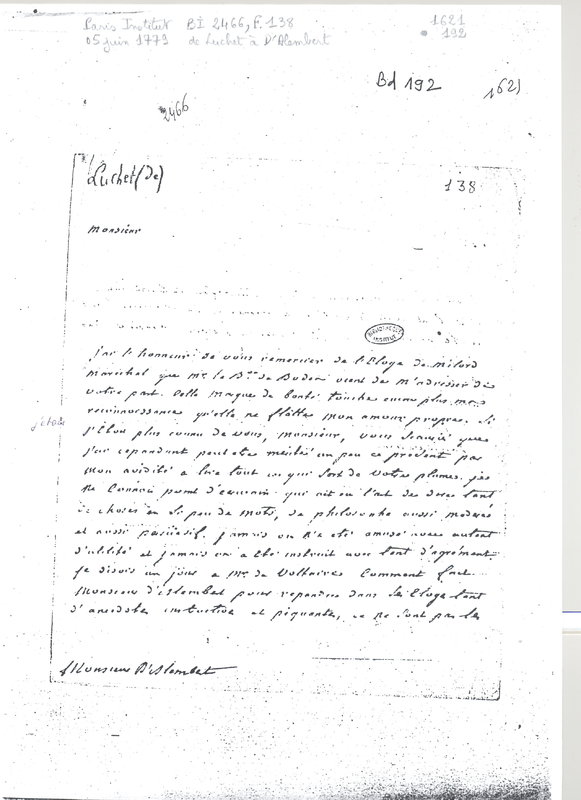 Paris Institut BI 2466, f. 138
1621
192
05 juin 1779 de Luchet à D'Alembert
Bd 192
1621
2466
Luchet (de)
138
Monsieur
BIBLIOTHEQUE
INSTITUT
j'ai l'honneur de vous remercier de l'Eloge de Milord
Marechal que Mr. le Bon. de Boden vient de m'adresser de
votre part. Cette marque de bonté touche encor plus ma
reconnoissance qu'elle ne flatte mon amour propre. Si
j'étois
j'Etois plus connu de vous, Monsieur, vous sauriés que
j'ai cependant peut etre mérité un peu ce présent par
mon avidité a lire tout ce qui sort de votre plume. je
ne connois point d'ecrivain qui ait eu l'art de dire tant
de choses en si peu de mots, de philosophe aussi moderé
et aussi persuasif. jamais on n'a eté amusé avec autant
d'utilité et jamais on a eté instruit avec tant d'agrément.
je disois un jour a Mr. de Voltaire Comment fait
Monsieur d'Alembert pour repandre dans ses Eloges tant
d'anecdotes instructives et piquantes, ce ne sont pas les
Monsieur D'Alembert